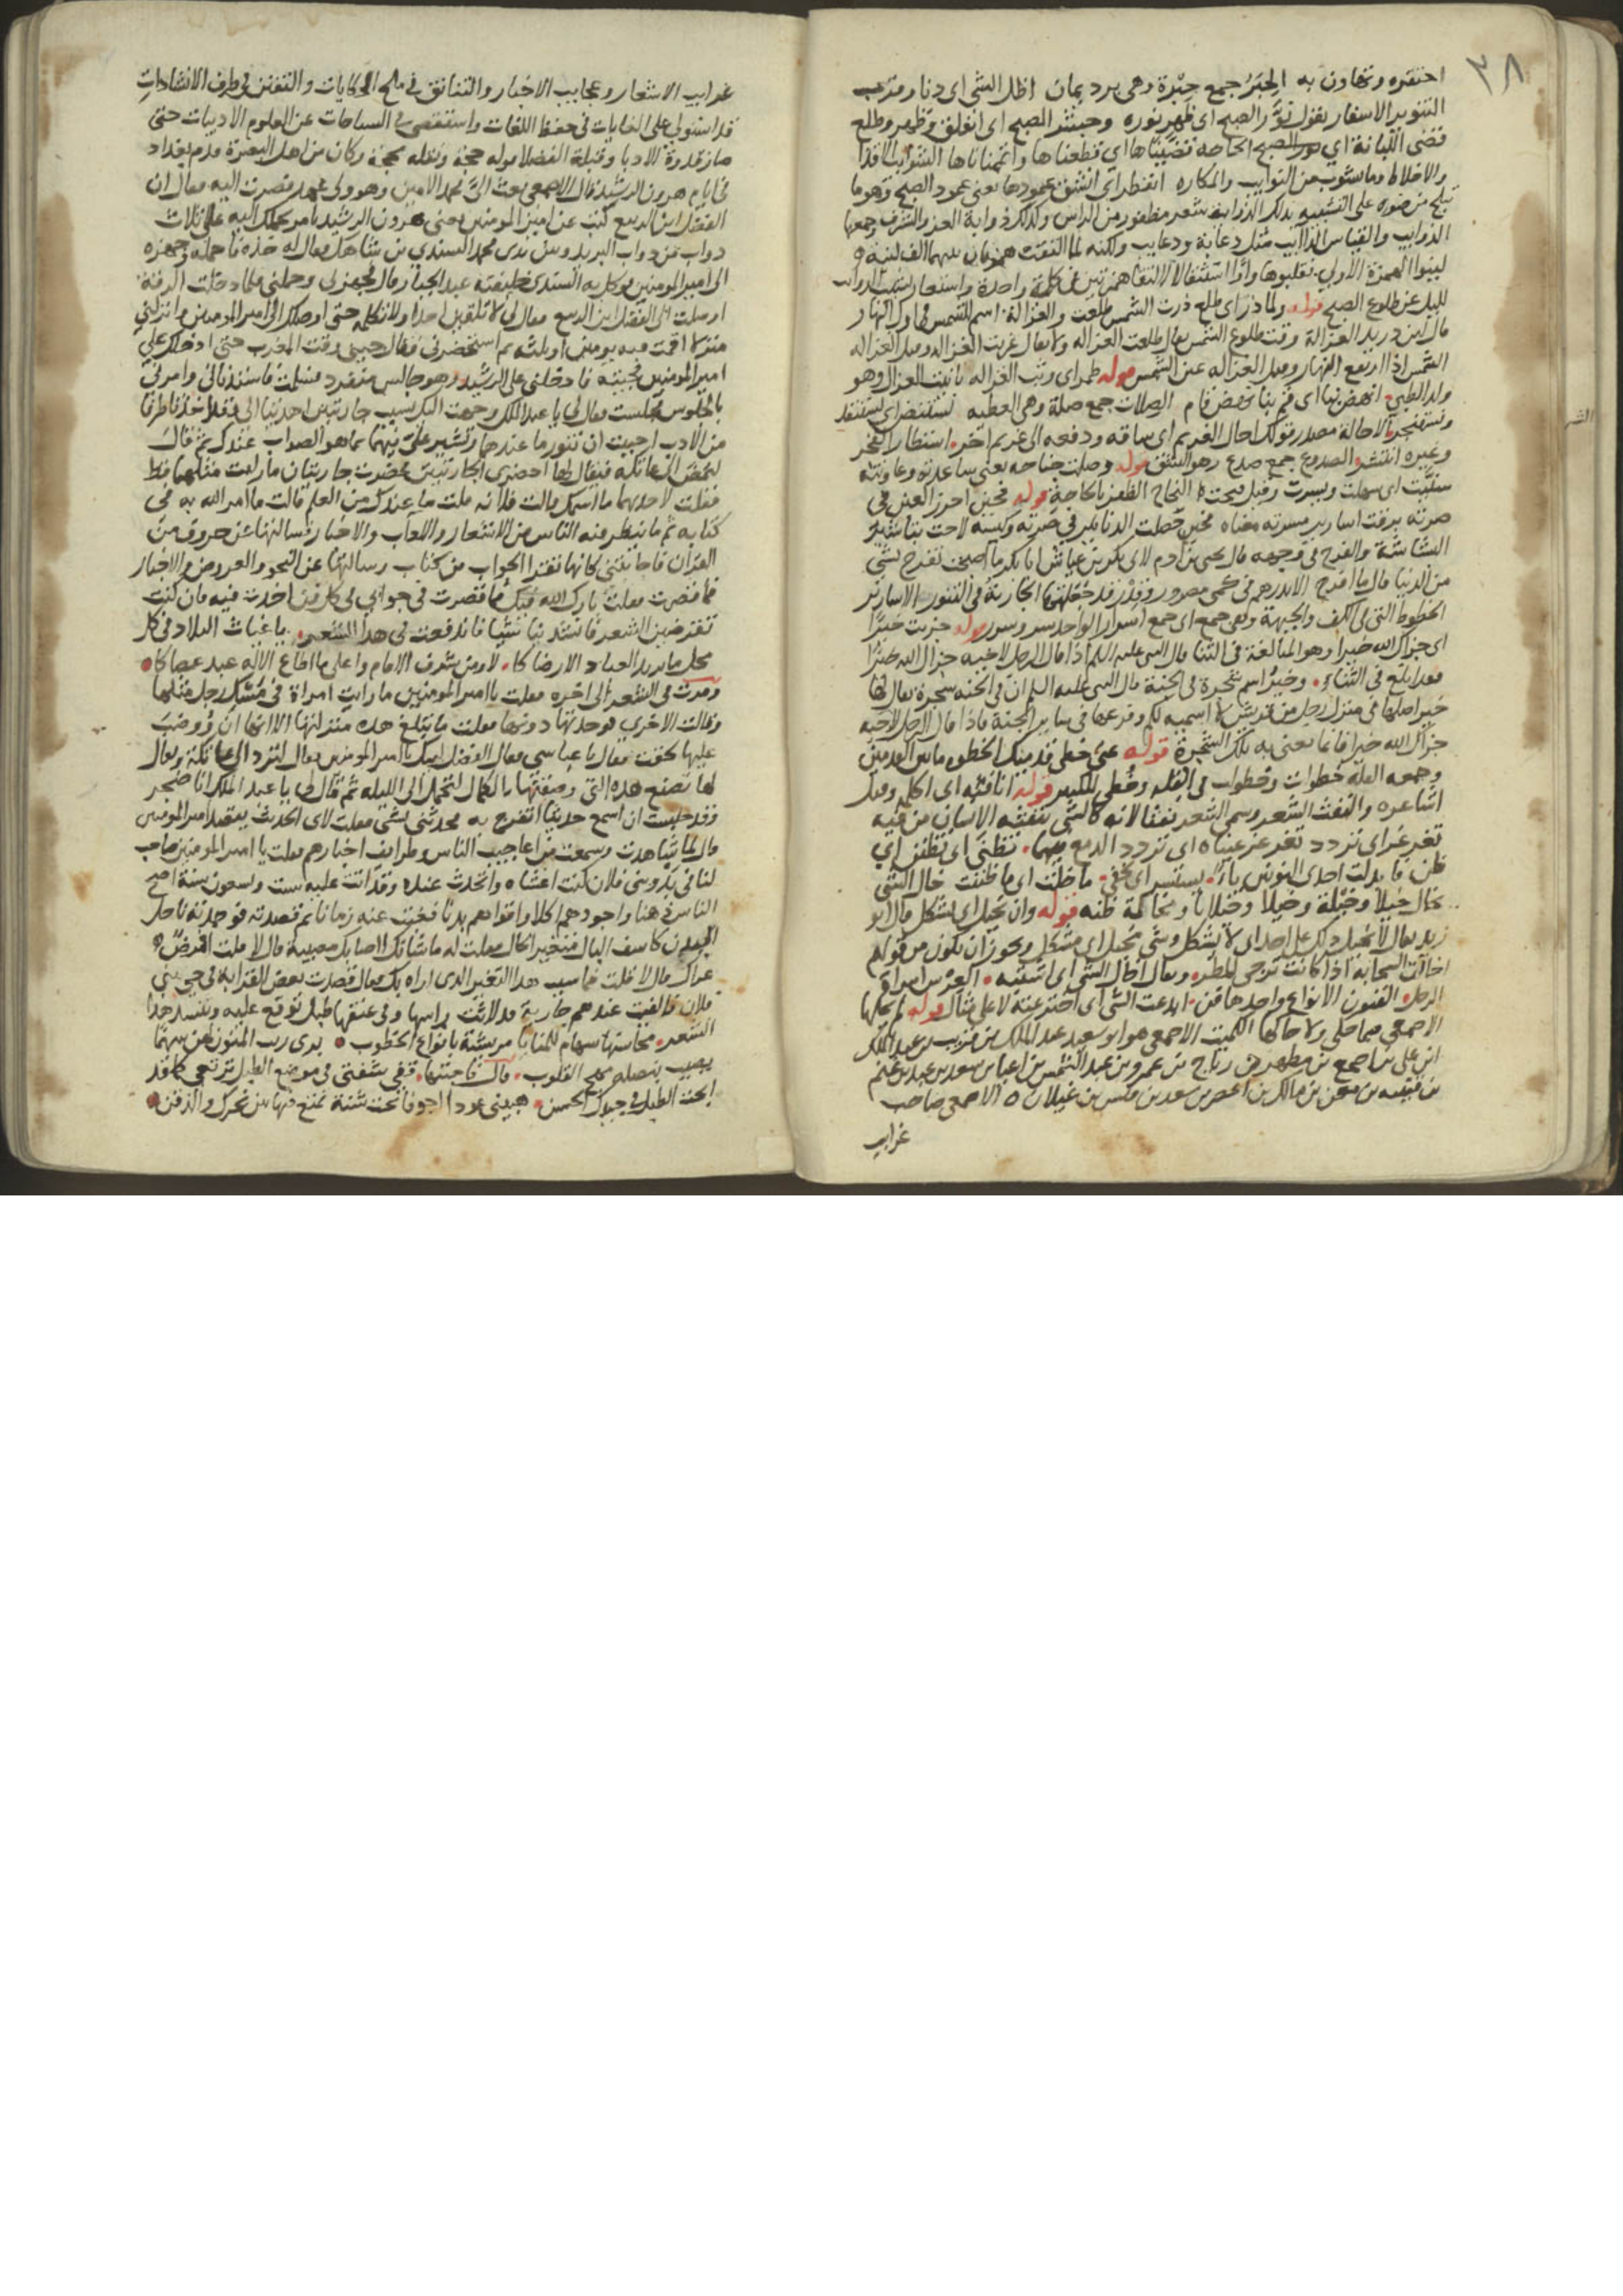 ٣٨
احتقره وتهاون به الحبر جمع حبرة وهي برد يمان اظل الشي اى دنا وقرب
التنوير الاسفار يقول نور الصبح اى ظهر نوره وجشر الصبح اى انفلق وظهر وطلع
قضى اللبانة اي الحاجة قضيناها اي قطعناها واتممناها الشوايب الاقذا
والاخلاط وما يشوب من النوايب والمكاره انفطر اى انشق عمودها يعنى عمود الصبح وهو ما
تبلج من ضوه على التشبيه بذلك الذوابة شعر مظفور من الراس وكذلك ذوابة العز والشرف وجمعها
الذوايب والقياس الذاآيب مثل دعابة ودعايب ولكنه لما التقت همزتان بينهما الف لينة
لينوا الهمزة الاولى فقلبوها واوا استثقالا لالتقا همزتين فى كلمة واحدة واستعار لشيب الذوايب
لليل عن طلوع الصبح قوله ولما ذر اى طلع ذرت الشمس طلعت والغزالة اسم الشمس فى اول النهار
قال ابن دريد الغزالة وقت طلوع الشمس يقال طلعت الغزاله ولا يقال غربت الغزاله وقيل الغزاله
الشمس اذا ارتفع النهار وقيل الغزاله عين الشمس قوله طمر اى وثب الغزاله تانيث الغزال وهو
ولد الظبي انهض بنا اى قم بنا نهض قام الصلات جمع صلة وهى العطيه نستنض اى نستنقد
ونستنجز الاحالة مصدر قولك احال الغريم اى ساقه ودفعه الى غريم اخر استطار الفجر
وغيره انتشر الصدوع جمع صدع وهو الشق قوله وصلت جناحه يعنى ساعدته وعاونته
سنيت اى سهلت ويسرت وقيل فتحت النجاح الظفر بالحاجة قوله فحين احرز العين فى
صرته برقت اسارير مسرته معناه فحين حصلت الدنانير فى صرته وكيسه لاحت تباشير
البشاشة والفرح فى وجهه قال يحيى بن ادم لابى بكر بن عياش ابا بكر ما اصبحت تفرح بشى
من الدنيا قال ما افرح الا بدرهم فى كمى مصرور وقدر قد جعلتها الجارية فى التنور الاسارير
الخطوط التى فى الكف والجبهة وهى جمع اى جمع اسرار الواحد سر وسرر قوله جزيت خيرا
اى جزاك الله خيرا وهو المبالغة فى الثنا قال النبى عليه السلم اذا قال الرجل لاخيه جزاك الله خيرا
فقد ابلغ فى الثناء وخير اسم شجرة فى الجنة قال النبى عليه السلم ان فى الجنه شجرة يقال لها
خير اصلها فى منزل رجل من قريش لا اسميه لكم وفرعها فى ساير الجنة فاذا قال الرجل لاخيه
جزاك الله خيرا فانما يعنى به تلك الشجرة قوله عن خطى قدمك الخطو ما بين القدمين
وجمعه القلة خطوات وخطوات فى القله وخطى للكثير قوله انافثه اى اكلم وقيل
اشاعره والنفث الشعر وسمى الشعر نفثا لانه كالشى ينفثه الانسان من فيه
تغرغر اى تردد تغرغر عيناه اى تردد الدمع فيهما تظنى اى تظنن اي
ظن فابدلت احدى النونين ياء يستسر اى يخفى ما خلت اى ما ظننت خال الشى
يخال خيلا وخيلة وخيلا وخيلانا ومخالة ظنه قوله وان تخيل اى يشكل قال ابو
زيد يقال لا تخيل ذلك على احد اى لا يشكل وشى مخيل اى مشكل ويجوز ان يكون من قولهم
اخالت السحابة اذا كانت ترجى المطر ويقال اخال الشى اى اشتبه العرس امراة
الرجل الفنون الانواع واحدها فن ابدعت الشى اى اخترعته لا على مثال قوله لم يحكها
الاصمعى فيما حكى ولا حاكها الكميت الاصمعى هو ابو سعيد عبد الملك بن قريب بن عبد الملك
ابن على بن اصمع بن مظهر بن رباح بن عمرو بن عبد الشمس بن اعيا بن سعد بن عبد بن غنم
بن قتيبه بن معن بن مالك بن اعصر بن سعد بن قيس بن غيلان الاصمعى صاحب
غرايب
غرايب الاشعار وعجايب الاخبار والتنانق فى ملح الحكايات والتفنن فى طرف الانشادات
قد استولى على الغايات فى حفظ اللغات واستقصى فى السباحات عن العلوم الادبيات حتى
صار قدوة للادبا وقبلة الفضلا قوله حجة ونقله محجة وكان من اهل البصرة قدم بغداد
فى ايام هرون الرشيد قال الاصمعى بعث الى محمد الامين وهو ولى عهد فصرت اليه فقال ان
الفضل ابن الربيع كتب عن امير المومنين يعنى هرون الرشيد يامر بحملك اليه على ثلاث
دواب من دواب البريد وبين يدى محمد السندي بن شاهك فقال له خذه فاحمله وجهزه
الى امير المومنين فوكل به السندى خليفته عبد الجبار فجهزنى وحملنى فلما دخلت الرقة
اوصلت الى الفضل بن الربيع فقال لى لا تلقين احدا ولا تكلمه حتى اوصلك الى امير المومنين وانزلنى
منزلا اقمت فيه يومين او ثلثه ثم استحضرنى فقال جينى وقت المغرب حتى ادخلك على
امير المومنين فجيته فادخلنى على الرشيد وهو جالس منفرد فسلمت فاستدنانى وامرنى
بالجلوس فجلست فقال لى يا عبد الملك وجهت اليك بسبب جاريتين اهديتا الى وقد اخذتا طرفا
من الادب احببت ان تبور ما عندهما وتشير على فيهما بما هو الصواب عندك ثم قال
ليمض الى عاتكه فيقال لها احضرى الجاريتين فحضرت جاريتان ما رايت مثلهما قط
فقلت لاحديهما ما اسمك قالت فلانه قلت ما عندك من العلم قالت ما امر الله به فى
كتابه ثم ما ينظر فيه الناس من الاشعار والالعاب والاخبار فسالتها عن حروف من
القران فاجابتنى كانها تقرا الجواب من كتاب وسالتها عن النحو والعروض والاخبار
فما قصرت فقلت بارك الله فيك فما قصرت فى جوابى فى كل فن اخذت فيه فان كنت
تقرضين الشعر فانشدينا شيا فاندفعت فى هذا الشعر يا غياث البلاد فى كل
محل ما يريد العباد الا رضاكا لا ومن شرف الامام واعلى ما اطاع الاله عبد عصاكا
ومرت فى الشعر الى اخره فقلت يا امير المومنين ما رايت امراة فى مسك رجل مثلها
وقالت الاخرى فوجدتها دونها فقلت ما تبلغ هذه منزلتها الا انها ان روضت
عليها لحقت فقال يا عباسى فقال الفضل لبيك يا امير المومنين فقال لترد الى عاتكة ويقال
لها تصنع هذه التى وصفتها بالكمال لتحمل الى الليله ثم قال لى يا عبد الملك انا ضجر
وقد جلست ان اسمع حديثا اتفرج به فحدثنى بشى فقلت لاى الحديث يقصد امير المومنين
قال لما شاهدت وسمعت من اعاجيب الناس وطرايف اخبارهم فقلت يا امير المومنين صاحب
لنا فى بدو بنى فلان كنت اغشاه واتحدث عنده وقد اتت عليه ست وتسعون سنة اصح
الناس ذهنا واجودهم اكلا واقواهم بدنا فغبت عنه زمانا ثم قصدته فوجدته ناحل
البدن كاسف البال متغير الحال فقلت له ما شانك ااصابك مصيبة قال لا قلت افمرض
عراك قال لا قلت فما سبب هذا التغير الذى اراه بك فقال قصدت بعض القرابة فى حى بنى
فلان فالفيت عندهم جارية قد لاثت راسها وفى عنقها طبل توقع عليه وتنشد هذا
الشعر محاسنها سهام للمنايا مريشة بانواع الخطوب برى ريب المنون لهن سهما
يصيب بنصله مهج القلوب قال فاجبتها قفى شفتى فى موضع الطبل ترتقى كما قد
ابحت الطبل فى جيدك الحسن هبينى عودا اجوفا تحت شنة تمتع فيها بين نحرك والذقن